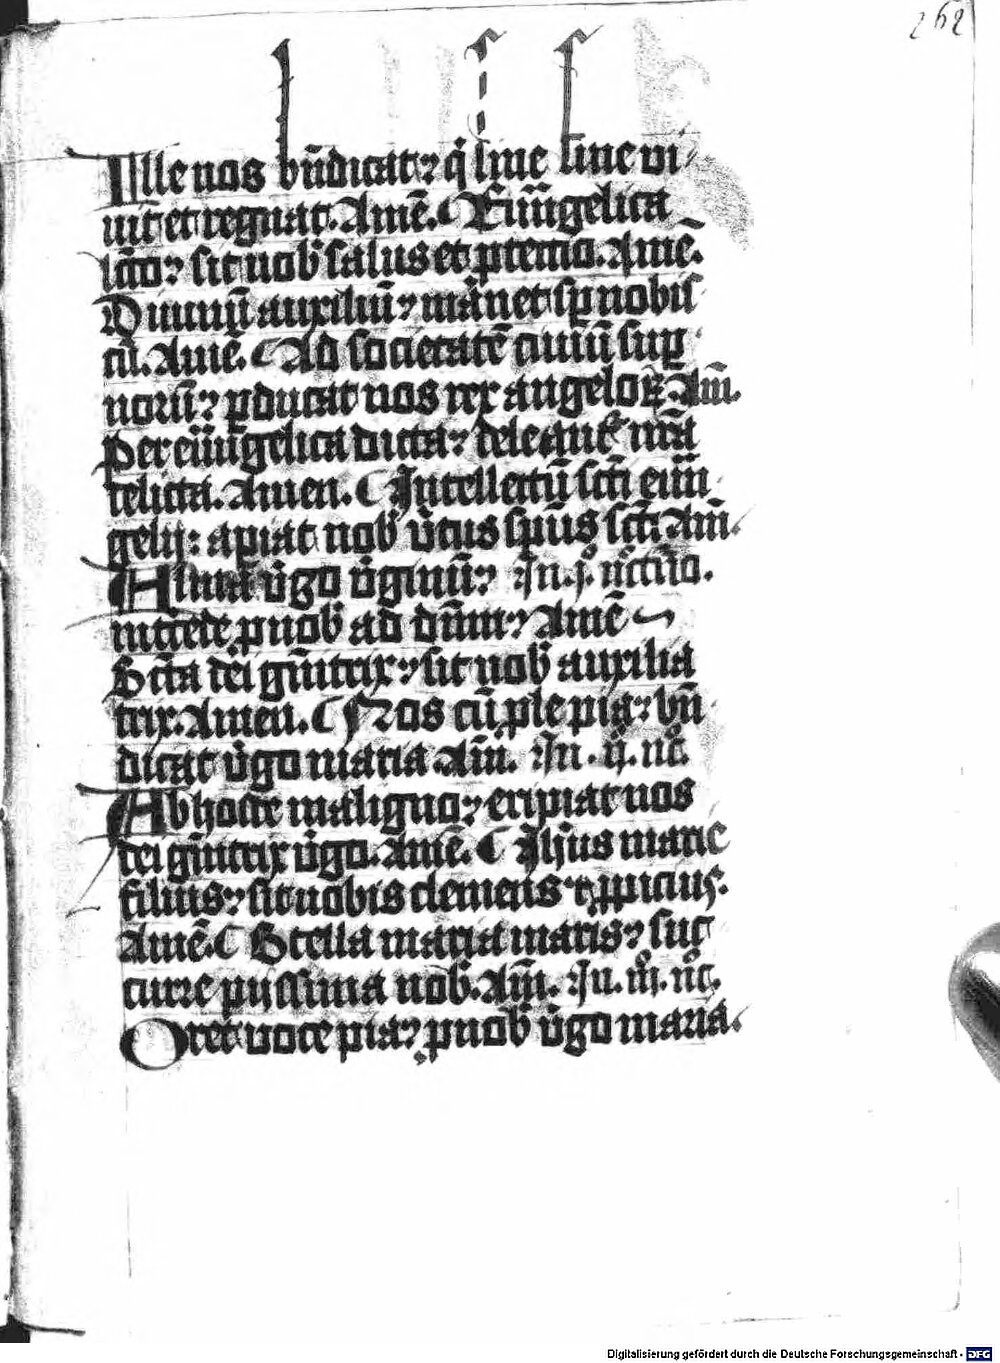 262
Ille nos bn̄dicat: q̇ sine fine vi
uit et regnat. Amē. Ewn̄gelica
lc̄io: sit nob̄ salus et ꝓtectio. Amē.
Diuinū auxiliū: maneat sꝑ nobis
cū. Amē. Ad societatē ciuiū suꝑ
noꝝ: ꝑducat nos rex angeloꝝ Am̄.
Per ewn̄gelica dicta: deleant᷑ nr̄a
delicta. Amen. Intellectū sc̄i ewn̄
gelij: apiat nob̄ v̄tus sp̄us sc̄i Am̄.
Alma v̄go v̄ginū: In. j. nctūo.
intcede ꝓ nob̄ ad dn̄m: Amē
Sc̄a dei gn̄itrix: sit nob̄ auxilia
trix. Amen. Nos cū ꝓle pia: bn̄
dicat v̄go maria Am̄. In. ij. nc̄.
Ab hoste maligno: eripiat nos
dei gn̄itrix v̄go. Amē. Jhūs marie
filius: sit nobis clemens ⁊ ꝓpicius.
Amē. Stella maria maris: suc
curre pijssima nob̄. Am̄. In. iij. nc̄.
Oret voce pia: ꝓ nob̄ v̄go maria.
Digitalisierung gefördert durch die Deutsche Forschungsgemeinschaft - DFG